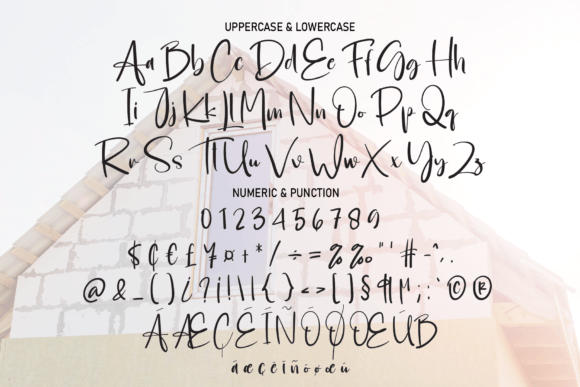 UPPERCASE & LOWERCASE
Aa Bb Cc Dd Ee Ff Gg Hh
Ii Jj Kk Ll Mm Nn Oo Pp Qq
Rr Ss Tt Uu Vv Ww Xx Yy Zz
NUMERIC & PUNCTION
0 1 2 3 4 5 6 7 8 9
$ ¢ € £ ¥ ¤ + * / ÷ = % ‰ " ' # - ^ , .
@ & _ ( ) ¿ ? ¡ ! | \ { } < > [ ] § ¶ µ ; : ` © ®
Á Æ Ç Ê Í Ñ Ó Ø Œ Ú ß
á æ ç ê í ñ ó ø œ ú